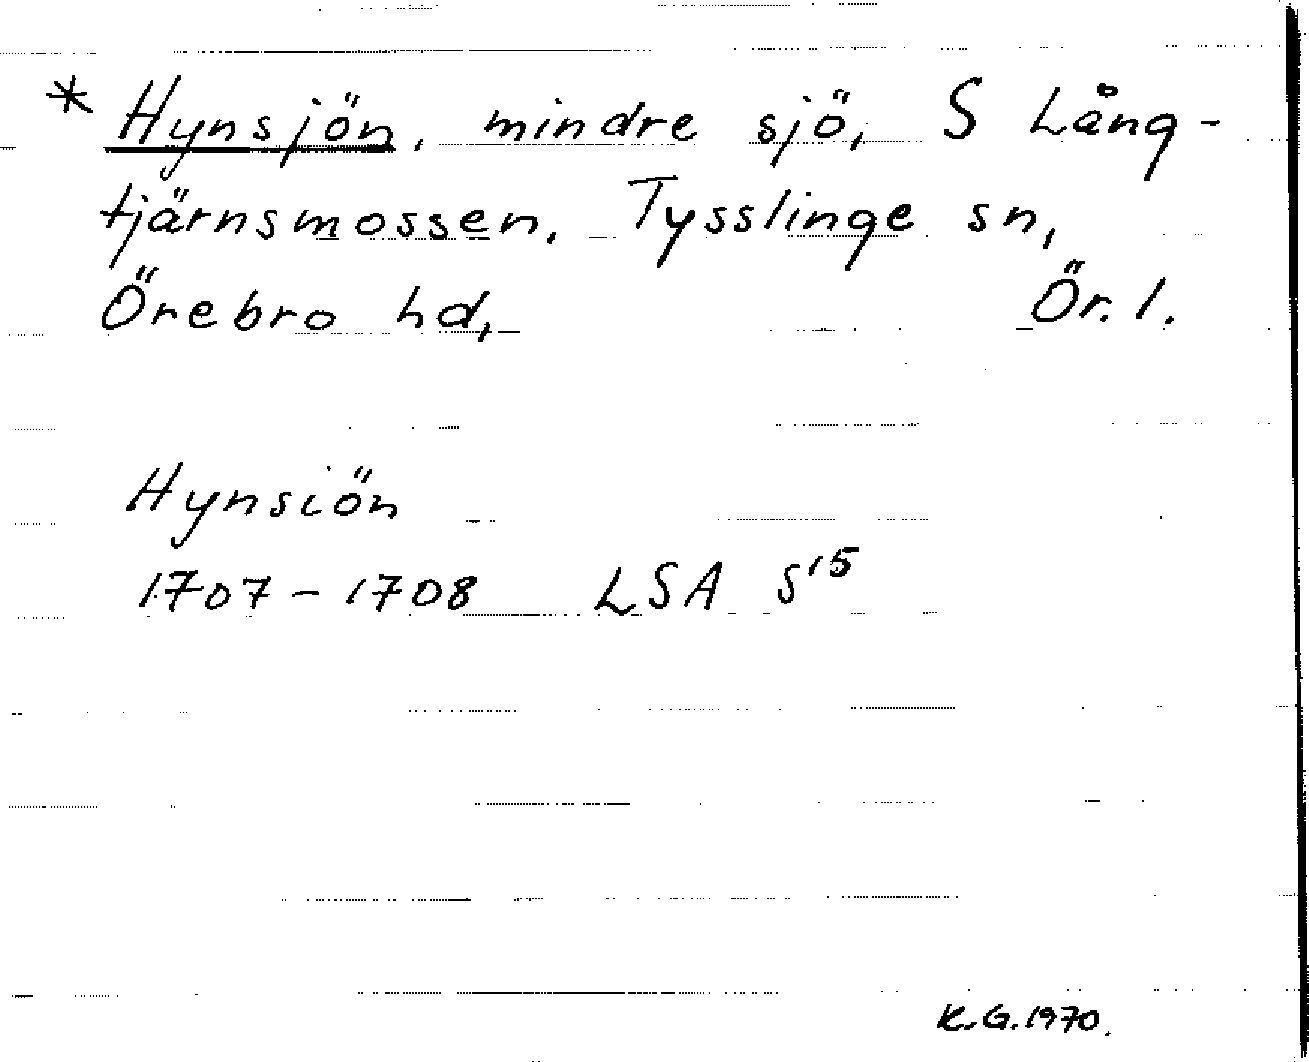 * Hynsjön, mindre sjö, S Lång-
tjärnsmossen, Tysslinge sn,
Örebro hd, Ör. l.
Hynsiön
1707-1708 LSA S15
K.G.1970.